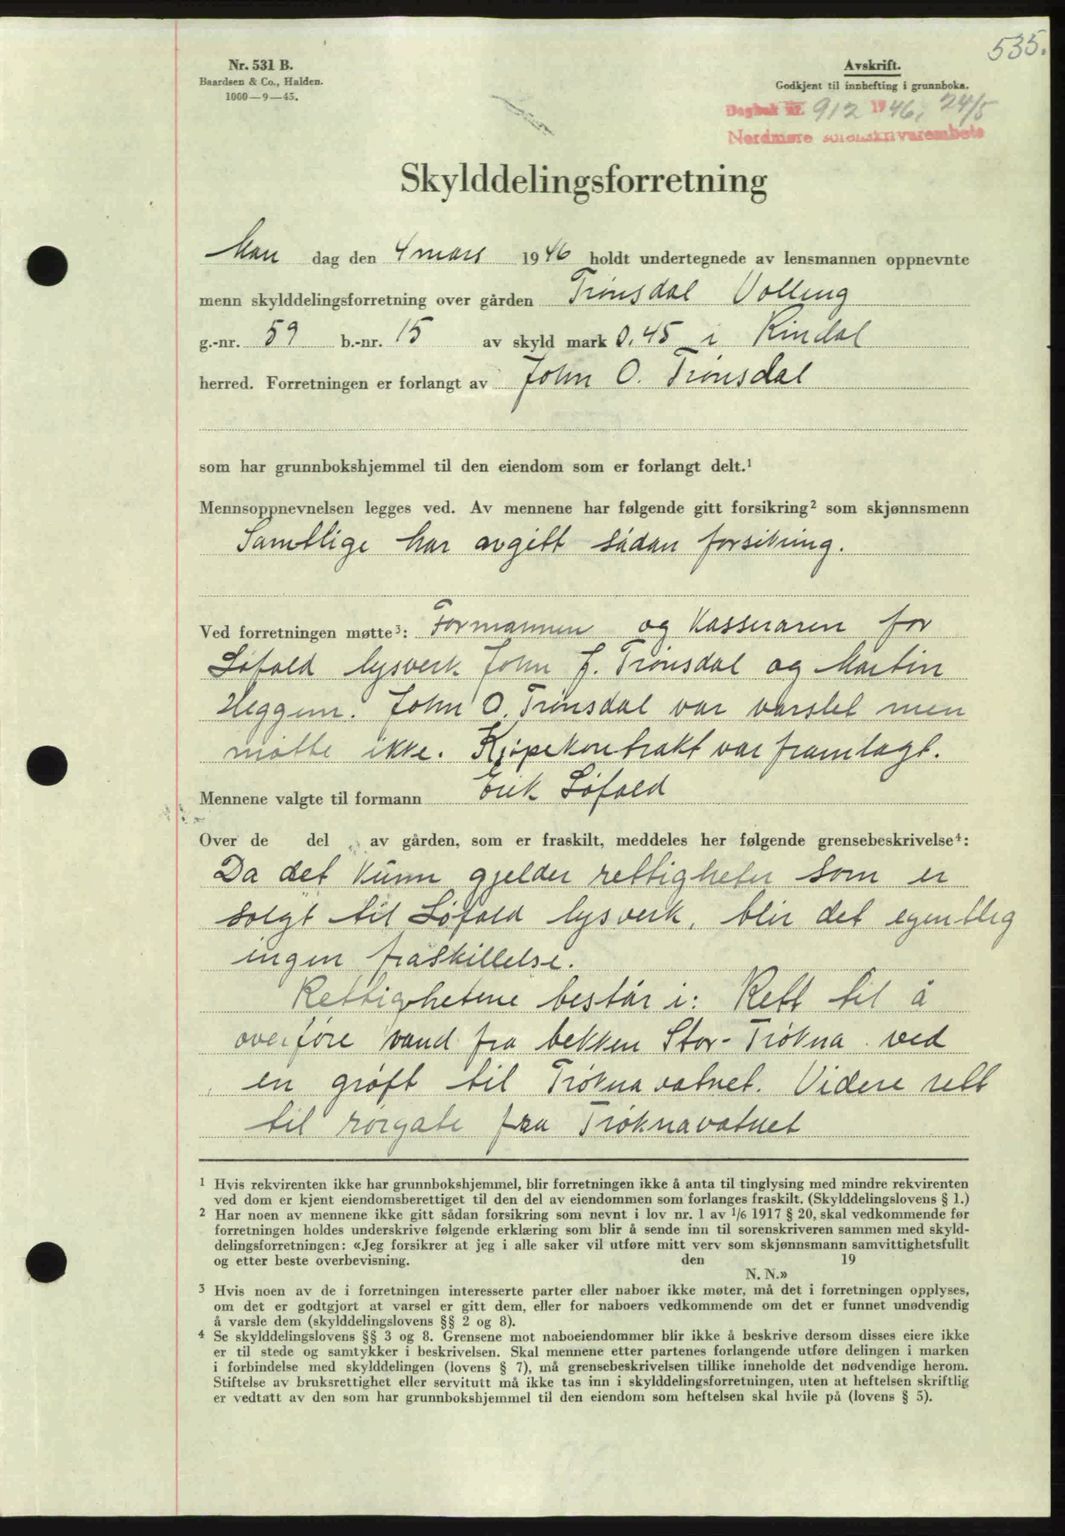 535.
Nr. 531 B.
Baardsen & Co., Halden.
1000—9—45.
Avskrift.
Godkjent til innhefting i grunnboka.
Dagbok nr. 912 1946, 24/5
Nordmøre sorenskriverembete
Skylddelingsforretning
Man dag den 4 mars 1946 holdt undertegnede av lensmannen oppnevnte
menn skylddelingsforretning over gården Trønsdal Volleng
g.-nr. 59 b.-nr. 15 av skyld mark 0,45 i Rindal
herred. Forretningen er forlangt av John O. Trønsdal
som har grunnbokshjemmel til den eiendom som er forlangt delt.¹
Mennsoppnevnelsen legges ved. Av mennene har følgende gitt forsikring² som skjønnsmenn
Samtlige har avgitt sådan forsikring.
Ved forretningen møtte³: Formannen og Kasseraren for
Løfald lysverk John J. Trønsdal og Martin
Heggem. John O. Trønsdal var varslet men
møtte ikke. Kjøpekontrakt var framlagt.
Mennene valgte til formann Erik Løfald
Over de del av gården, som er fraskilt, meddeles her følgende grensebeskrivelse⁴:
Da det kunn gjelder rettigheter som er
solgt til Løfald lysverk, blir det egentlig
ingen fraskillelse.
Rettighetene består i: Rett til å
overføre vand fra bekken Stor-Trøkna ved
en grøft til Trøknavatnet. Videre rett
til rørgate fra Trøknavatnet
¹ Hvis rekvirenten ikke har grunnbokshjemmel, blir forretningen ikke å anta til tinglysing med mindre rekvirenten
ved dom er kjent eiendomsberettiget til den del av eiendommen som forlanges fraskilt. (Skylddelingslovens § 1.)
² Har noen av mennene ikke gitt sådan forsikring som nevnt i lov nr. 1 av 1/6 1917 § 20, skal vedkommende før
forretningen holdes underskrive følgende erklæring som blir å sende inn til sorenskriveren sammen med skyld-
delingsforretningen: «Jeg forsikrer at jeg i alle saker vil utføre mitt verv som skjønnsmann samvittighetsfullt
og etter beste overbevisning. den 19
N. N.»
³ Hvis noen av de i forretningen interesserte parter eller naboer ikke møter, må det i forretningen opplyses,
om det er godtgjort at varsel er gitt dem, eller for naboers vedkommende om det er funnet unødvendig
å varsle dem (skylddelingslovens §§ 2 og 8).
⁴ Se skylddelingslovens §§ 3 og 8. Grensene mot naboeiendommer blir ikke å beskrive dersom disses eiere ikke
er til stede og samtykker i beskrivelsen. Skal mennene etter partenes forlangende utføre delingen i marken
i forbindelse med skylddelingen (lovens § 7), må grensebeskrivelsen tillike inneholde det nødvendige herom.
Stiftelse av bruksrettighet eller servitutt må ikke tas inn i skylddelingsforretningen, uten at heftelsen skriftlig
er vedtatt av den som har grunnbokshjemmel til den eiendom som heftelsen skal hvile på (lovens § 5).